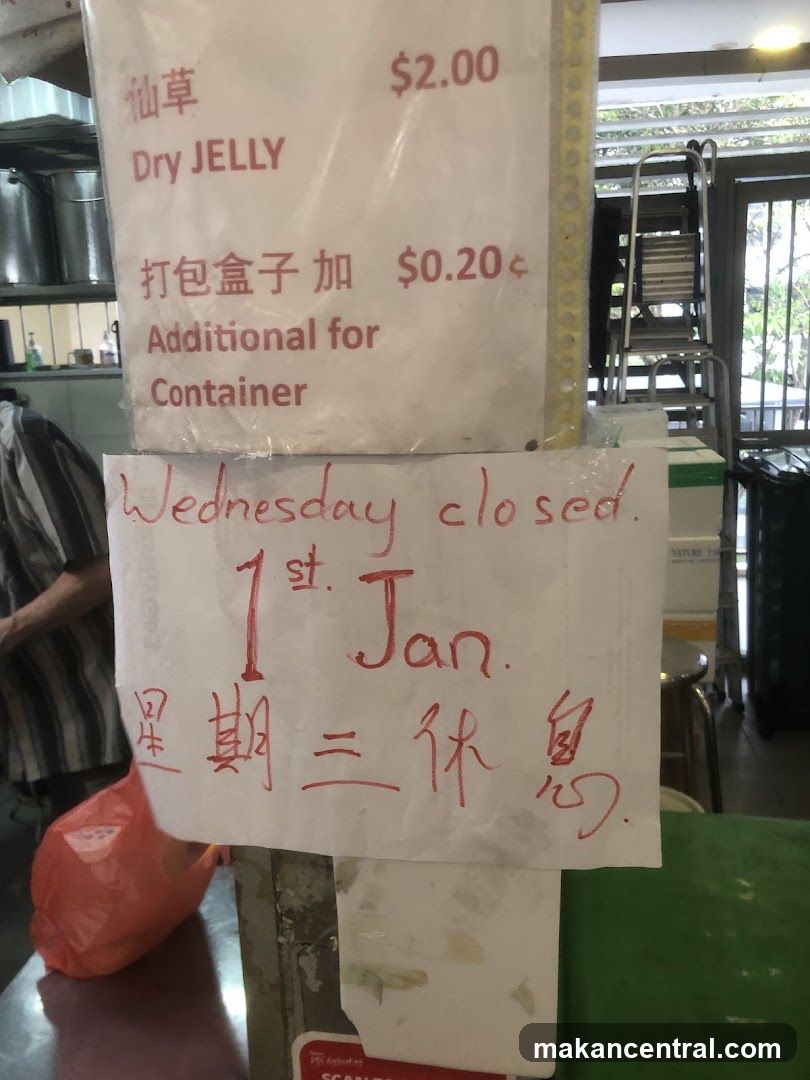 仙草 $2.00
Dry JELLY
打包盒子 加 $0.20¢
Additional for
Container
Wednesday closed.
1st. Jan.
星期三休息.
NATURE
SCAN
makancentral.com